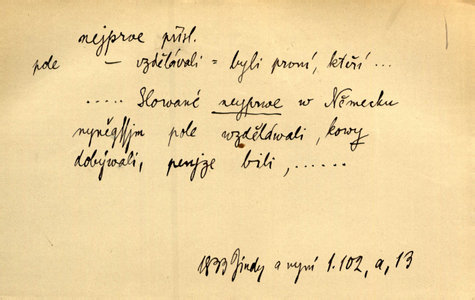 nejprve přísl.
pole — vzdělávali = byli první, kteří ...
..... Slowané neyprwe w Německu
nyněgssjm pole wzděláwali, kowy
dobýwali, penjze bili, ......
1833 Jindy a nyní 1.102, a, 13